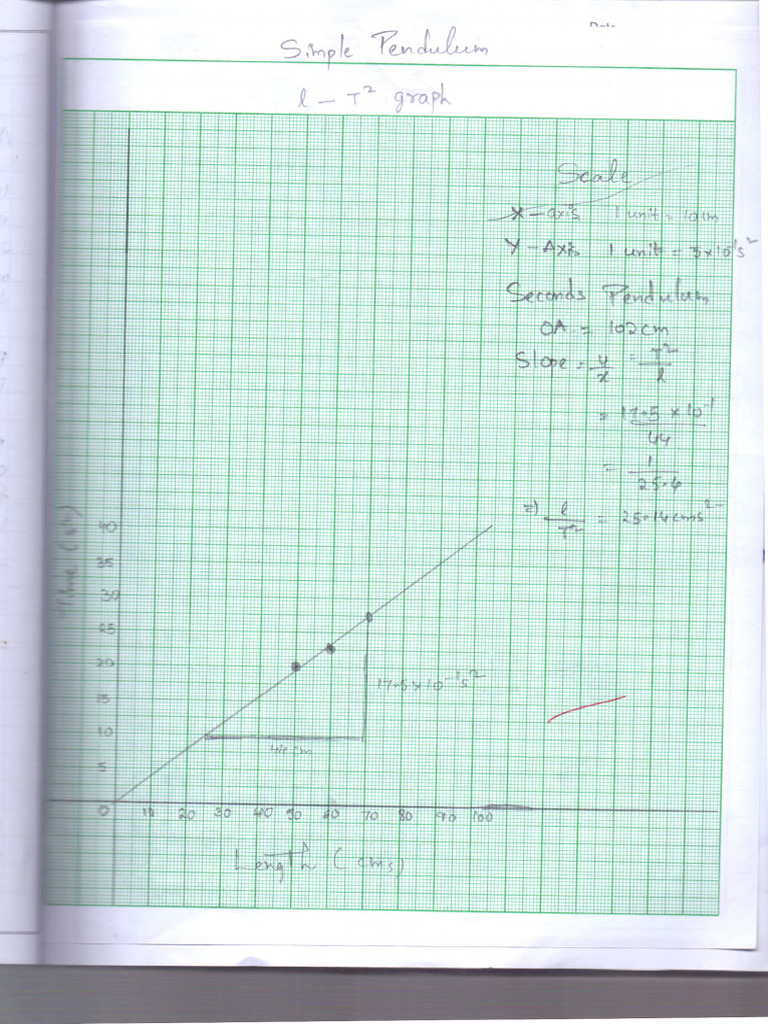 Simple Pendulum
l - T² graph
Scale
X - axis 1 unit = 10cm
Y - Axis 1 unit = 5×10⁻¹s²
Seconds Pendulum
OA = 102cm
Slope = y/x = T²/l
= 17.5 × 10⁻¹/44
= 1/25.6
⇒ l/T² = 25.14cms²⁻
40
35
30
25
20
15
10
5
0
17.5×10⁻¹s²
44cm
10 20 30 40 50 60 70 80 90 100
Length (cms)